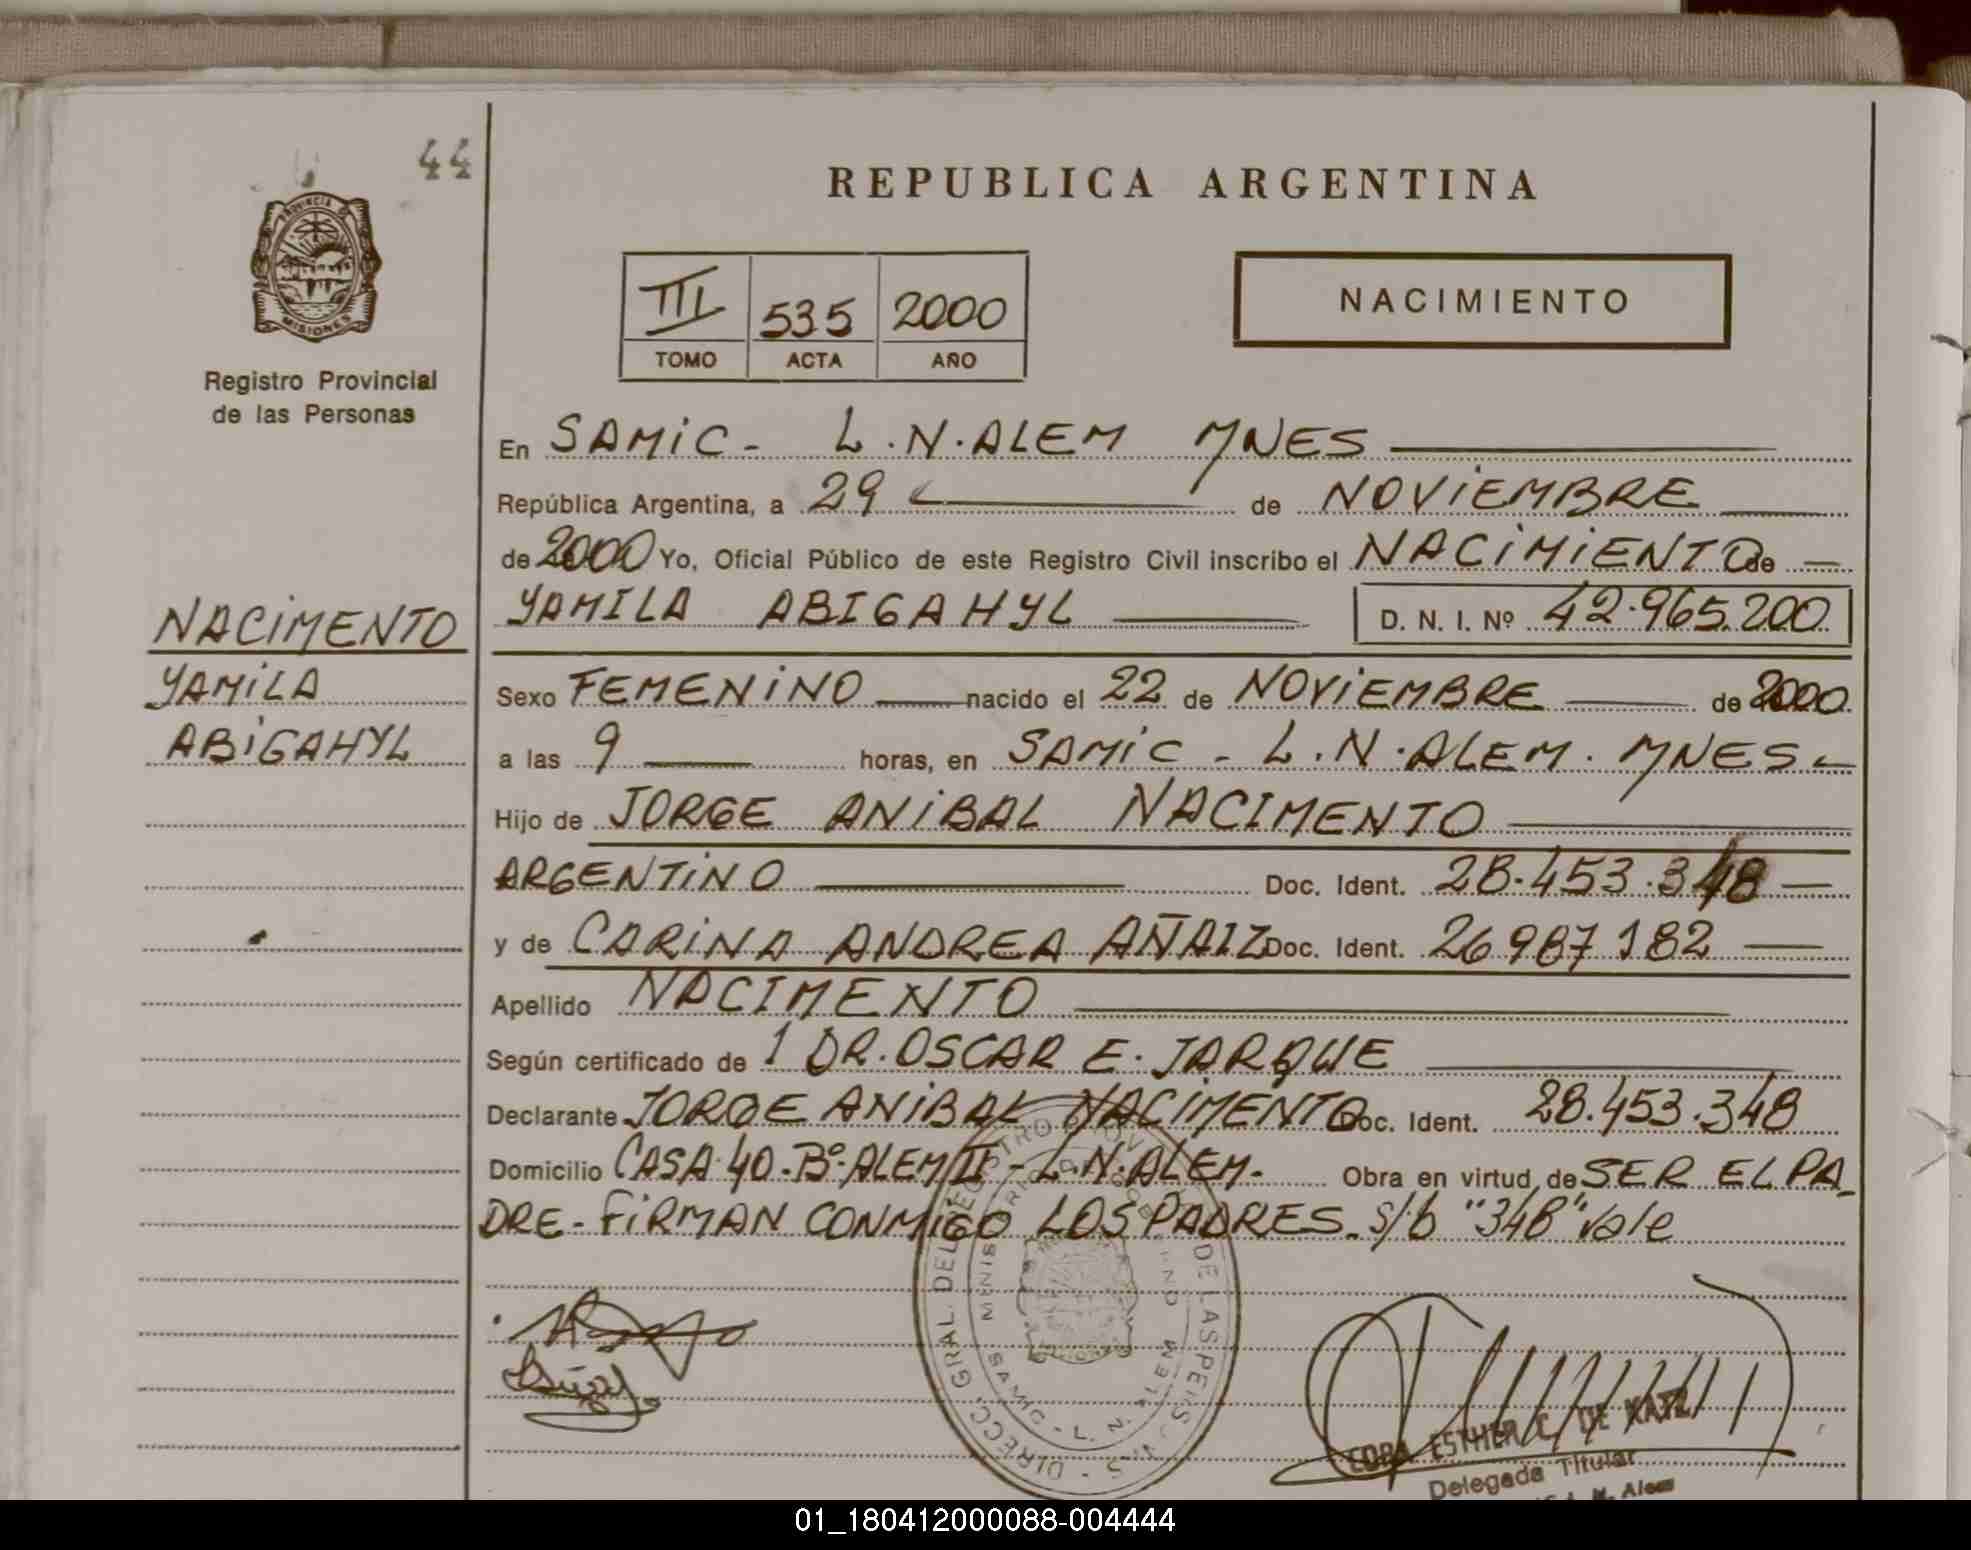 44
REPUBLICA ARGENTINA
PROVINCIA DE
MISIONES
Registro Provincial
de las Personas
III 535 2000
TOMO ACTA AÑO
NACIMIENTO
En SAMiC - L.N.ALEM MNES
República Argentina, a 29 de NOViEMBRE
de 2000 Yo, Oficial Público de este Registro Civil inscribo el NACiMiENTO de
YAMILA ABIGAHYL D. N. I. Nº 42.965.200
NACiMENTO
YAMiLA
ABiGAHYL
Sexo FEMENiNO nacido el 22 de NOViEMBRE de 2000
a las 9 horas, en SAMiC - L.N.ALEM. MNES -
Hijo de JORGE ANiBAL NACIMENTO
ARGENTiNO Doc. Ident. 28.453.348
y de CARiNA ANDREA AÑAIZ Doc. Ident. 26987182
Apellido NACIMENTO
Según certificado de 1 DR. OSCAR E. JARQUE
Declarante JORGE ANiBAL NACiMENTO Doc. Ident. 28.453.348
Domicilio CASA 40 - Bº ALEM II - L.N.ALEM - Obra en virtud de SER EL PA_
DRE - FiRMAN CONMIGO LOS PADRES. s/b "348" Vale
DIRECC. GRAL. DEL REGISTRO PROV. DE LAS PERS.
SAMIC - L. N. ALEM
ESTHER C. DE KATZ
Delegada Titular
Alem
01_180412000088-004444